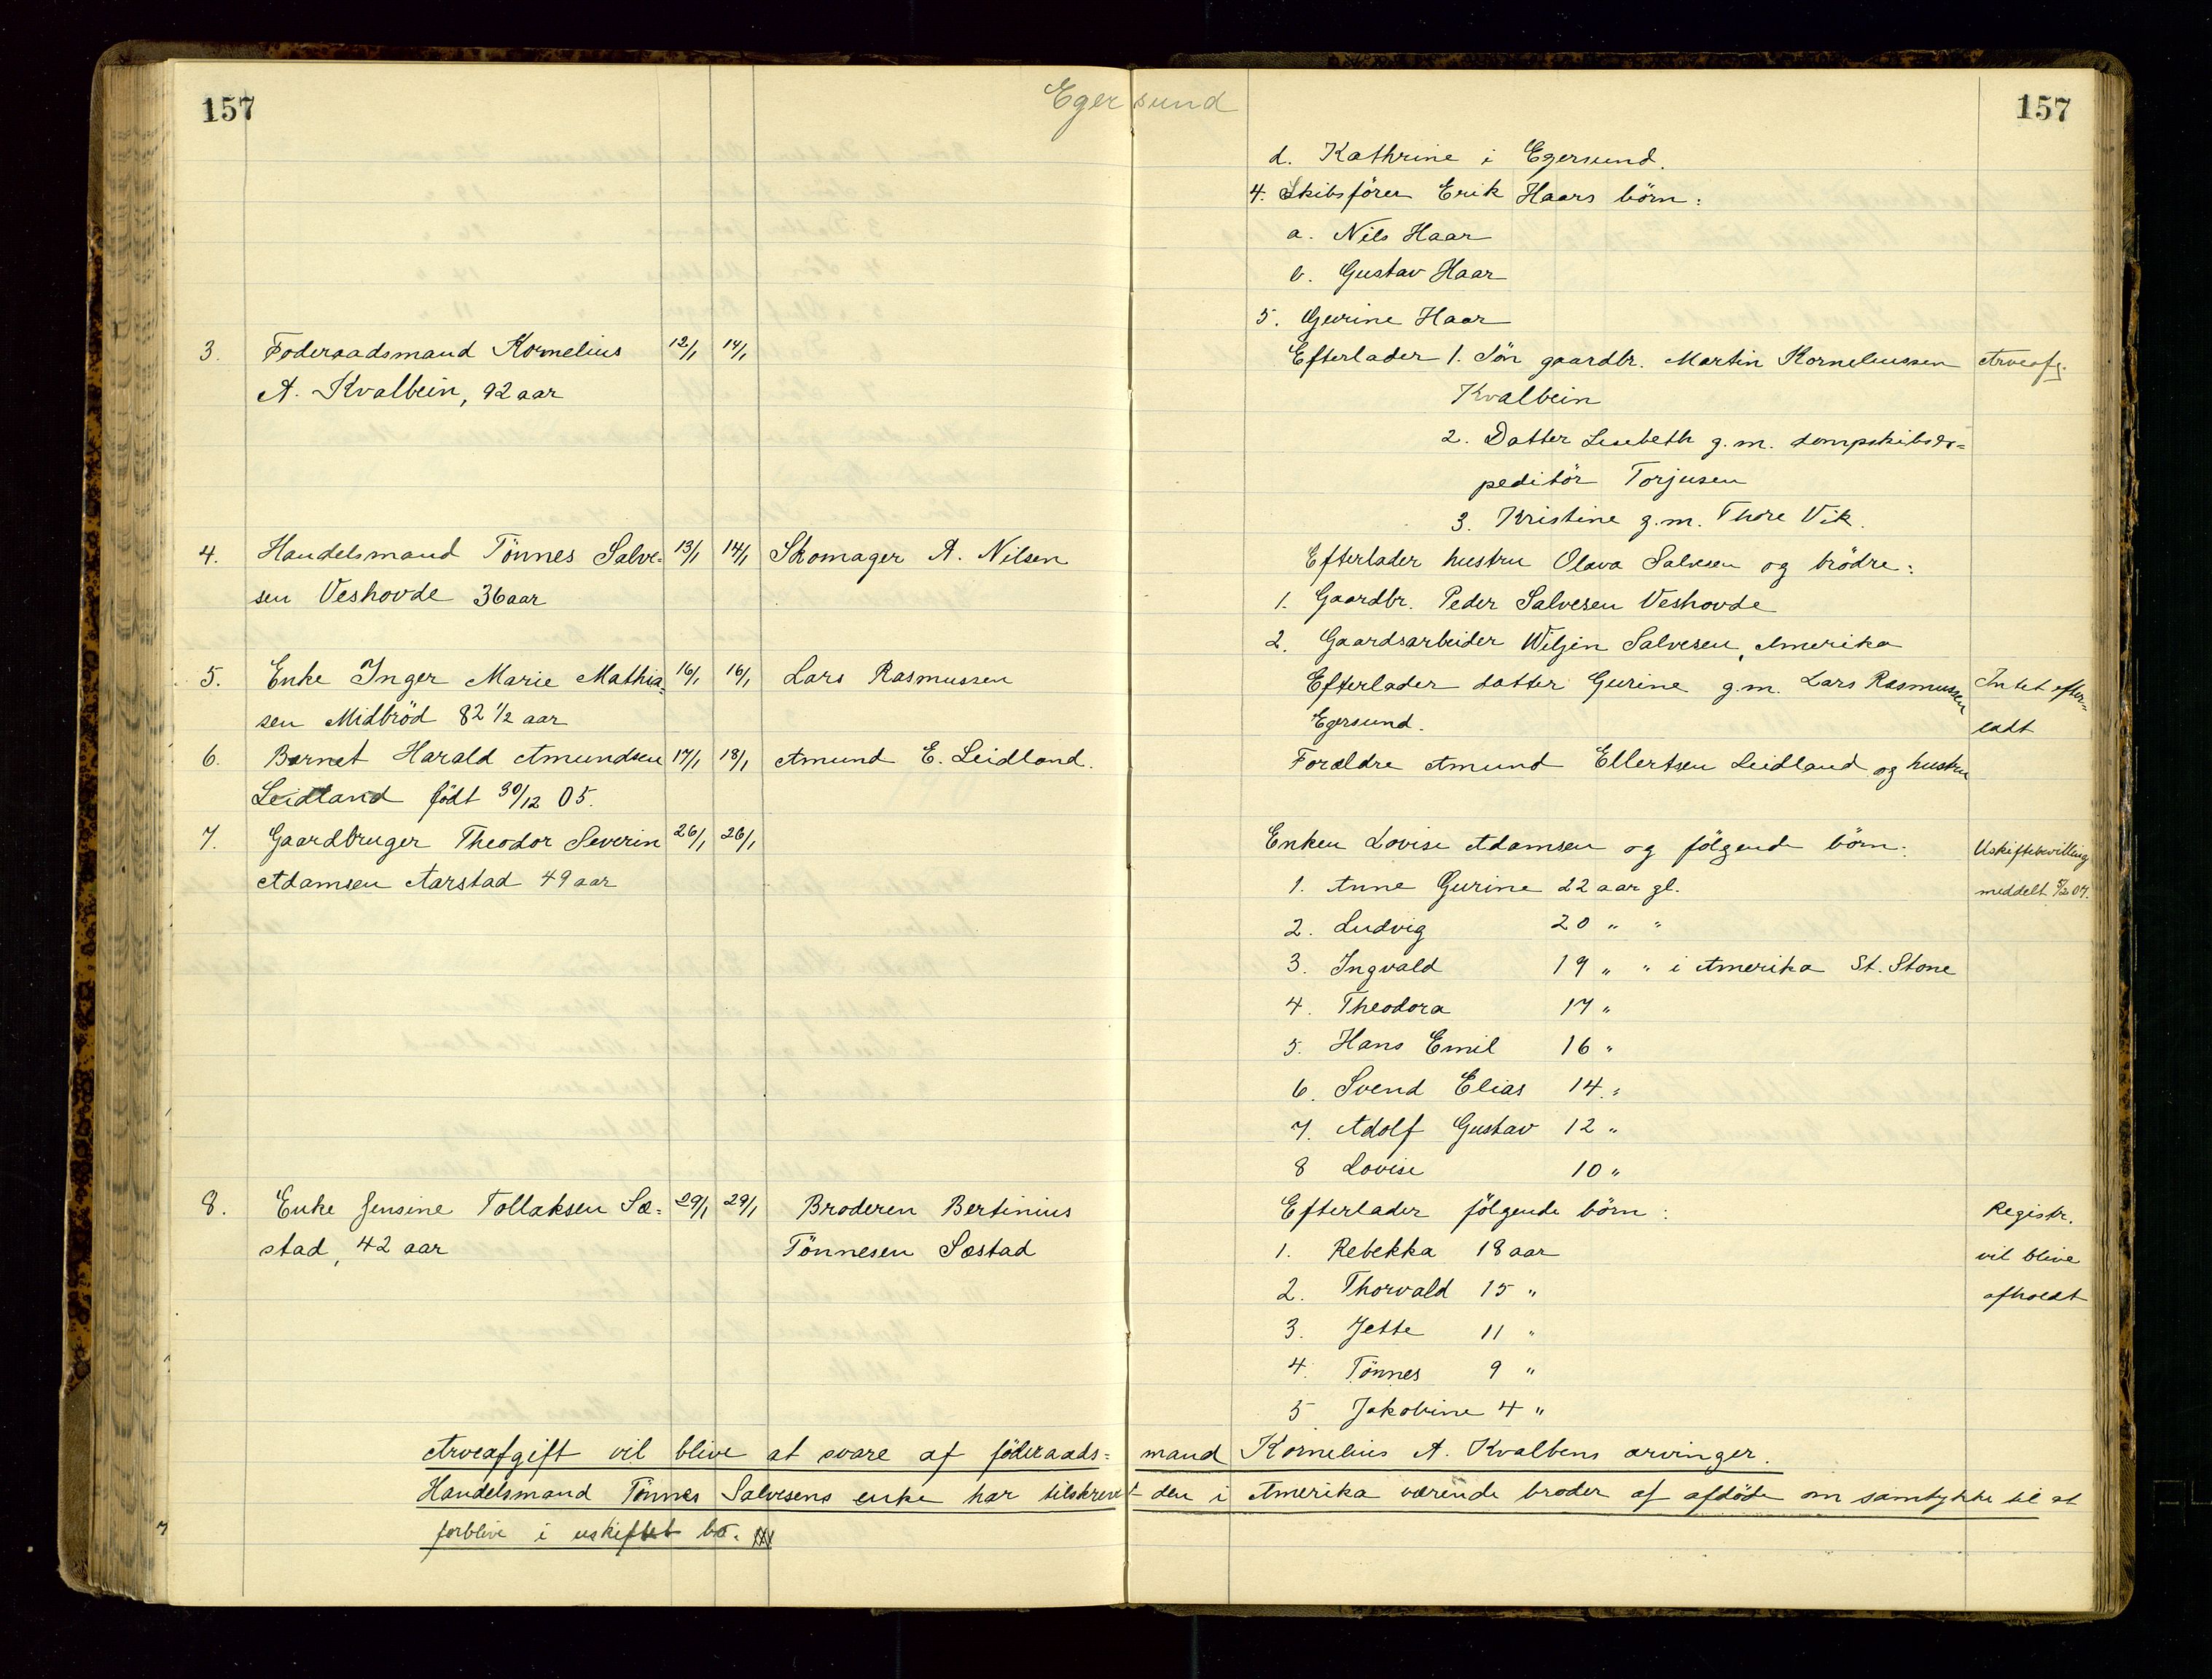 157
Egersund
157
d. Kathrine i Egersund.
4. Skibsförer Erik Haars börn:
a. Nils Haar
b. Gustav Haar
5. Gurine Haar
3. Föderaadsmand Kornelius 12/1 14/1
A. Kvalbein, 92 aar
Efterlader 1. Sön gaardbr. Martin Korneliussen Arveafg.
Kvalbein
2. Datter Lisebeth g.m. dampskibsex=
peditör Torjusen
3. Kristine g.m. Thore Vik.
4. Handelsmand Tönnes Salve= 13/1 14/1 Skomager A. Nilsen
sen Veshovde 36 aar
Efterlader hustru Olava Salvesen og brödre:
1. Gaardbr. Peder Salvesen Veshovde
2. Gaardsarbeider Wiljen Salvesen, Amerika
5. Enke Inger Marie Mathia= 16/1 16/1 Lars Rasmussen
sen Midbröd 82 1/2 aar
Efterlader datter Gurine g.m. Lars Rasmussen Intet efter=
Egersund. ladt
6. Barnet Harald Amundsen 17/1 18/1 Amund E. Leidland.
Leidland födt 30/12 05.
Forældre Amund Ellertsen Leidland og hustru
7. Gaardbruger Theodor Severin 26/1 26/1
Adamsen Aarstad 49 aar
Enken Lovise Adamsen og fölgende börn: Uskiftebevilling
1. Anne Gurine 22 aar gl. meddelt 5/2 07.
2. Ludvig 20 " "
3. Ingvald 19 " " i Amerika St. Stone
4. Theodora 17 "
5. Hans Emil 16 "
6. Svend Elias 14 "
7. Adolf Gustav 12 "
8 Lovise 10 "
8. Enke Jensine Tollaksen Sæ= 29/1 29/1 Broderen Bertinius
stad, 42 aar Tönnesen Sæstad
Efterlader fölgende börn: Registr.
1. Rebekka 18 aar vil blive
2. Thorvald 15 " afholdt
3. Jette 11 "
4. Tönnes 9 "
5 Jakobine 4 "
Arveafgift vil blive at svare af föderaads= mand Kornelius A. Kvalbens arvinger.
Handelsmand Tönnes Salvesens enke har tilskrevet den i Amerika værende broder af afdöde om samtykke til at
forblive i uskiftet bo.